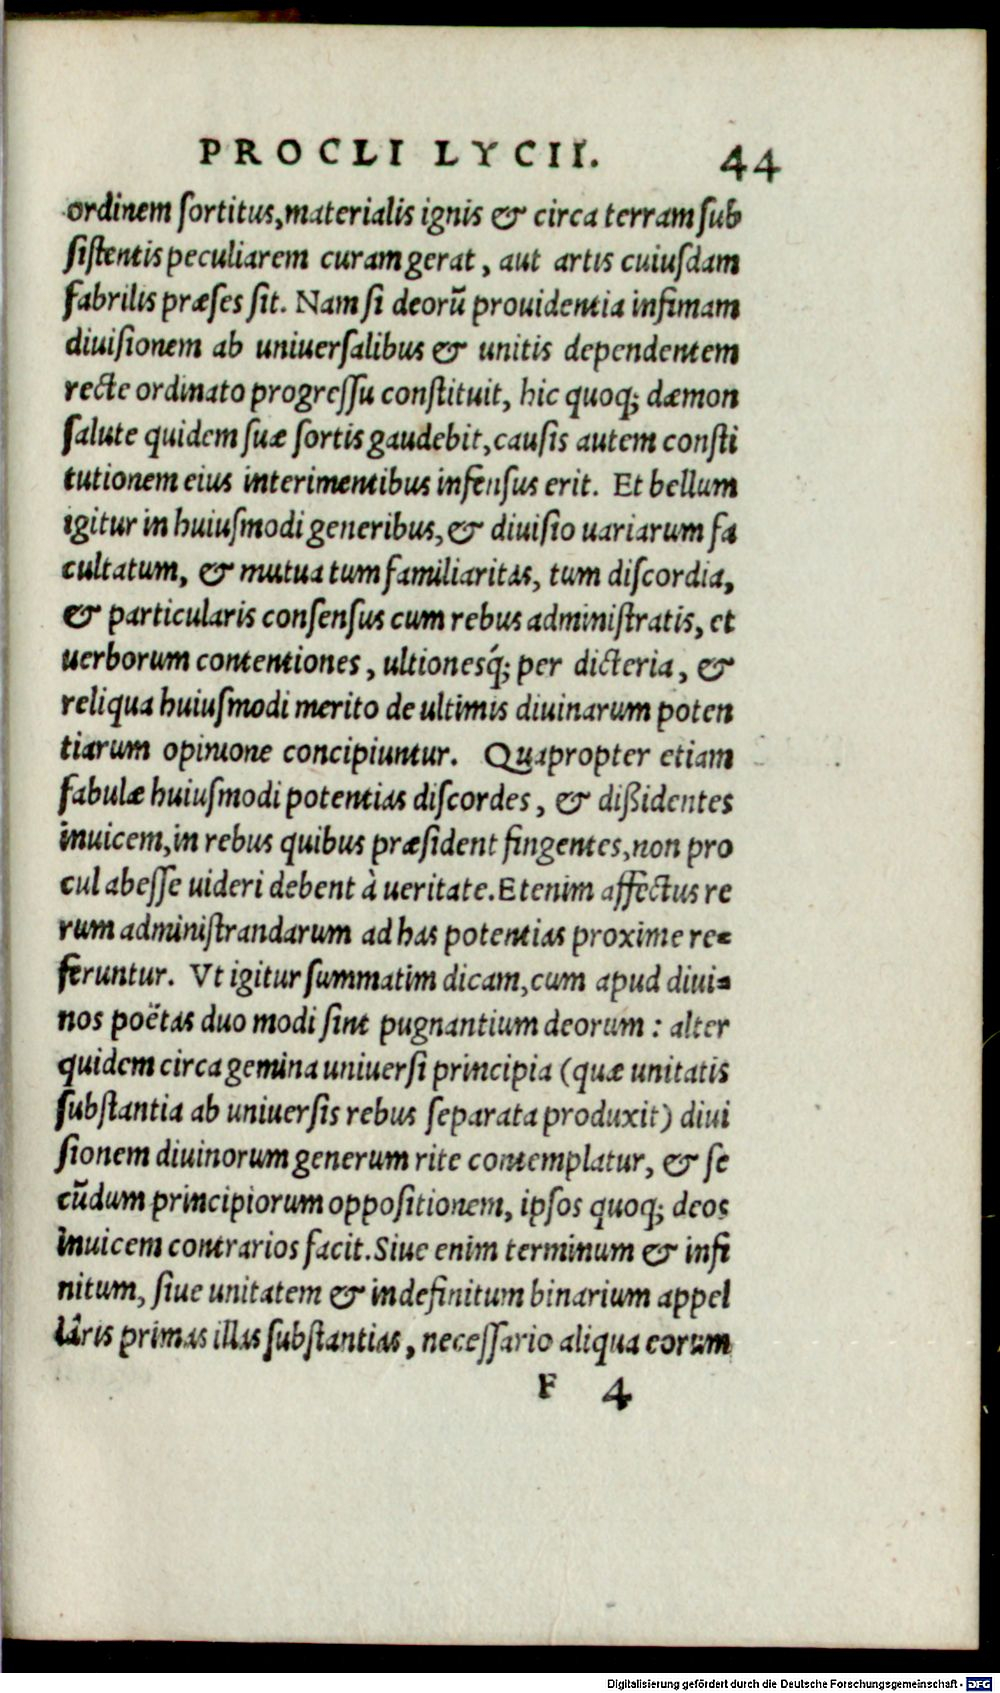 PROCLI LYCII. 44
ordinem ſortitus,materialis ignis & circa terram ſub
ſiſtentis peculiarem curam gerat, aut artis cuiuſdam
fabrilis præſes ſit. Nam ſi deorū prouidentia infimam
diuiſionem ab uniuerſalibus & unitis dependentem
recte ordinato progreſſu conſtituit, hic quoq; dæmon
ſalute quidem ſuæ ſortis gaudebit,cauſis autem conſti
tutionem eius interimentibus infenſus erit. Et bellum
igitur in huiuſmodi generibus, & diuiſio uariarum fa
cultatum, & mutua tum familiaritas, tum diſcordia,
& particularis conſenſus cum rebus adminiſtratis, et
uerborum contentiones, ultionesq́; per dicteria, &
reliqua huiuſmodi merito de ultimis diuinarum poten
tiarum opinione concipiuntur. Quapropter etiam
fabulæ huiuſmodi potentias diſcordes, & dißidentes
inuicem,in rebus quibus præſident fingentes,non pro
cul abeſſe uideri debent à ueritate.Etenim affectus re
rum adminiſtrandarum ad has potentias proxime re=
feruntur. Vt igitur ſummatim dicam,cum apud diui=
nos poëtas duo modi ſint pugnantium deorum : alter
quidem circa gemina uniuerſi principia (quæ unitatis
ſubſtantia ab uniuerſis rebus ſeparata produxit) diui
ſionem diuinorum generum rite contemplatur, & ſe
cūdum principiorum oppoſitionem, ipſos quoq; deos
inuicem contrarios facit.Siue enim terminum & infi
nitum, ſiue unitatem & indefinitum binarium appel
laris primas illas ſubſtantias, neceſſario aliqua eorum
F 4
Digitalisierung gefördert durch die Deutsche Forschungsgemeinschaft - DFG